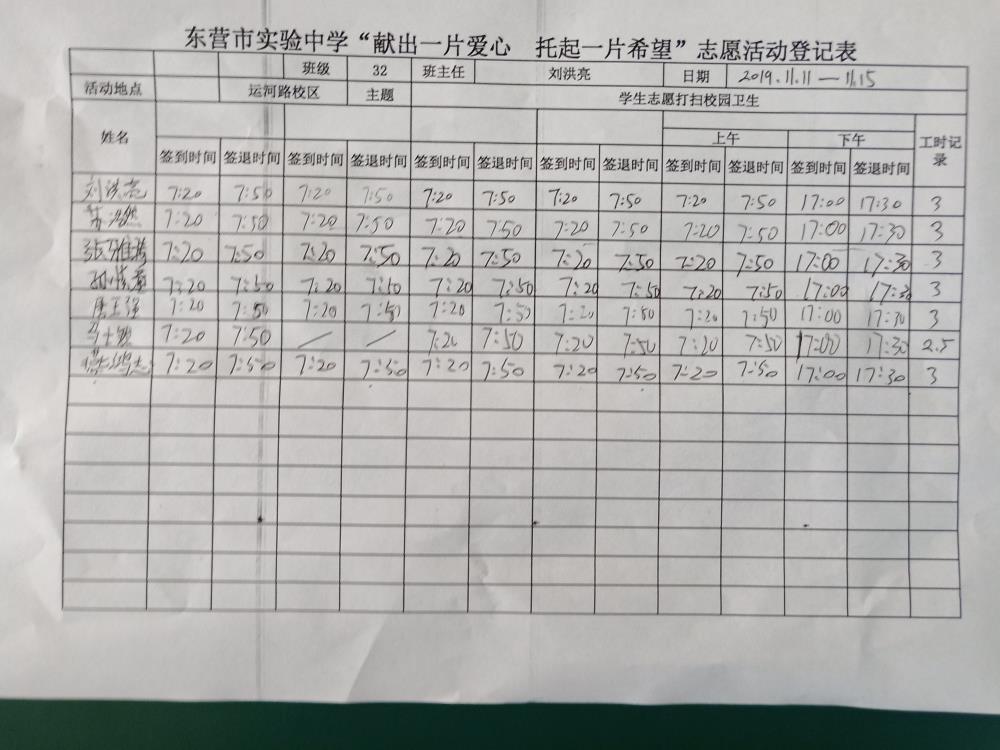 东营市实验中学“献出一片爱心 托起一片希望”志愿活动登记表
班级 32 班主任 刘洪亮 日期 2019.11.11—11.15
活动地点 运河路校区 主题 学生志愿打扫校园卫生
姓名 上午 下午 工时记录
签到时间 签退时间 签到时间 签退时间 签到时间 签退时间 签到时间 签退时间 签到时间 签退时间 签到时间 签退时间
刘洪亮 7:20 7:50 7:20 7:50 7:20 7:50 7:20 7:50 7:20 7:50 17:00 17:30 3
7:20 7:50 7:20 7:50 7:20 7:50 7:20 7:50 7:20 7:50 17:00 17:30 3
7:20 7:50 7:20 7:50 7:20 7:50 7:20 7:50 7:20 7:50 17:00 17:30 3
7:20 7:50 7:20 7:50 7:20 7:50 7:20 7:50 7:20 7:50 17:00 17:30 3
唐玉强 7:20 7:50 7:20 7:50 7:20 7:50 7:20 7:50 7:20 7:50 17:00 17:30 3
7:20 7:50 / / 7:20 7:50 7:20 7:50 7:20 7:50 17:00 17:30 2.5
7:20 7:50 7:20 7:50 7:20 7:50 7:20 7:50 7:20 7:50 17:00 17:30 3